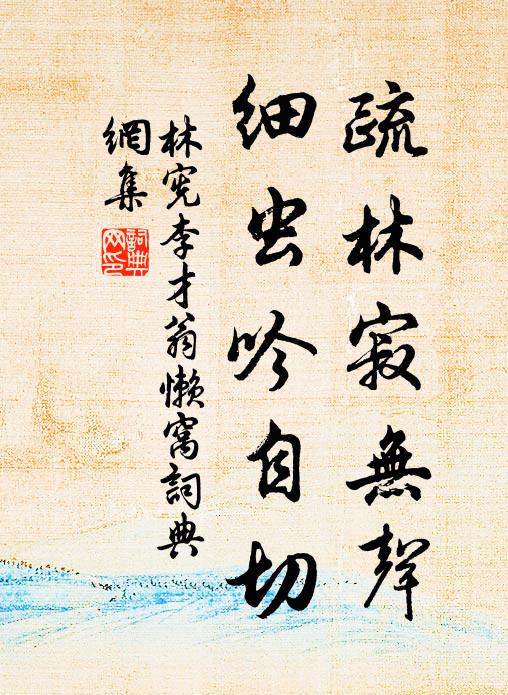 疏林寂無聲
細虫吟自切
林宪李才翁懒窝詞典
網集
詞典
网印